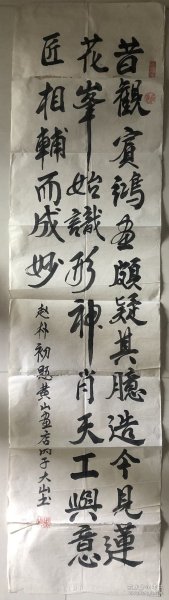 昔觀賓鴻畫頗疑其臆造今見蓮
花峯始識形神肖天工與意
匠相輔而成妙
趙朴初題黃山畫店丙子大山书